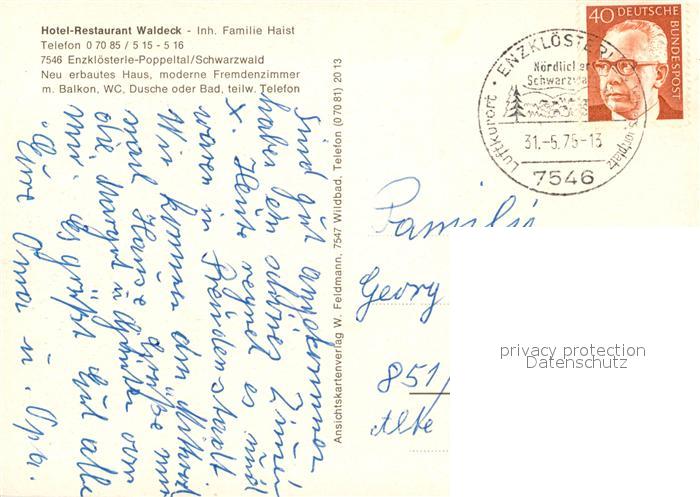 Hotel-Restaurant Waldeck - Inh. Familie Haist
Telefon 0 70 85 / 5 15 - 5 16
7546 Enzklösterle-Poppeltal/Schwarzwald
Neu erbautes Haus, moderne Fremdenzimmer
m. Balkon, WC, Dusche oder Bad, teilw. Telefon
Sind gut angekommen
haben ein schönes Zimmer
x. Heute regnet es und
waren in Freudenstadt
Wir kommen am Mittwoch
nach Hause Grüße mir
die von
mir. Es grüßt Euch alle
Eure Oma u. Opa.
Ansichtskartenverlag W. Feldmann, 7547 Wildbad, Telefon (0 70 81) 20 13
40 DEUTSCHE
BUNDESPOST
ENZKLÖSTER
Nördlicher
Schwarzwa
Luftkurort
31.-5.75-13
7546
Familie
Georg
851/
Alte
privacy protection
Datenschutz